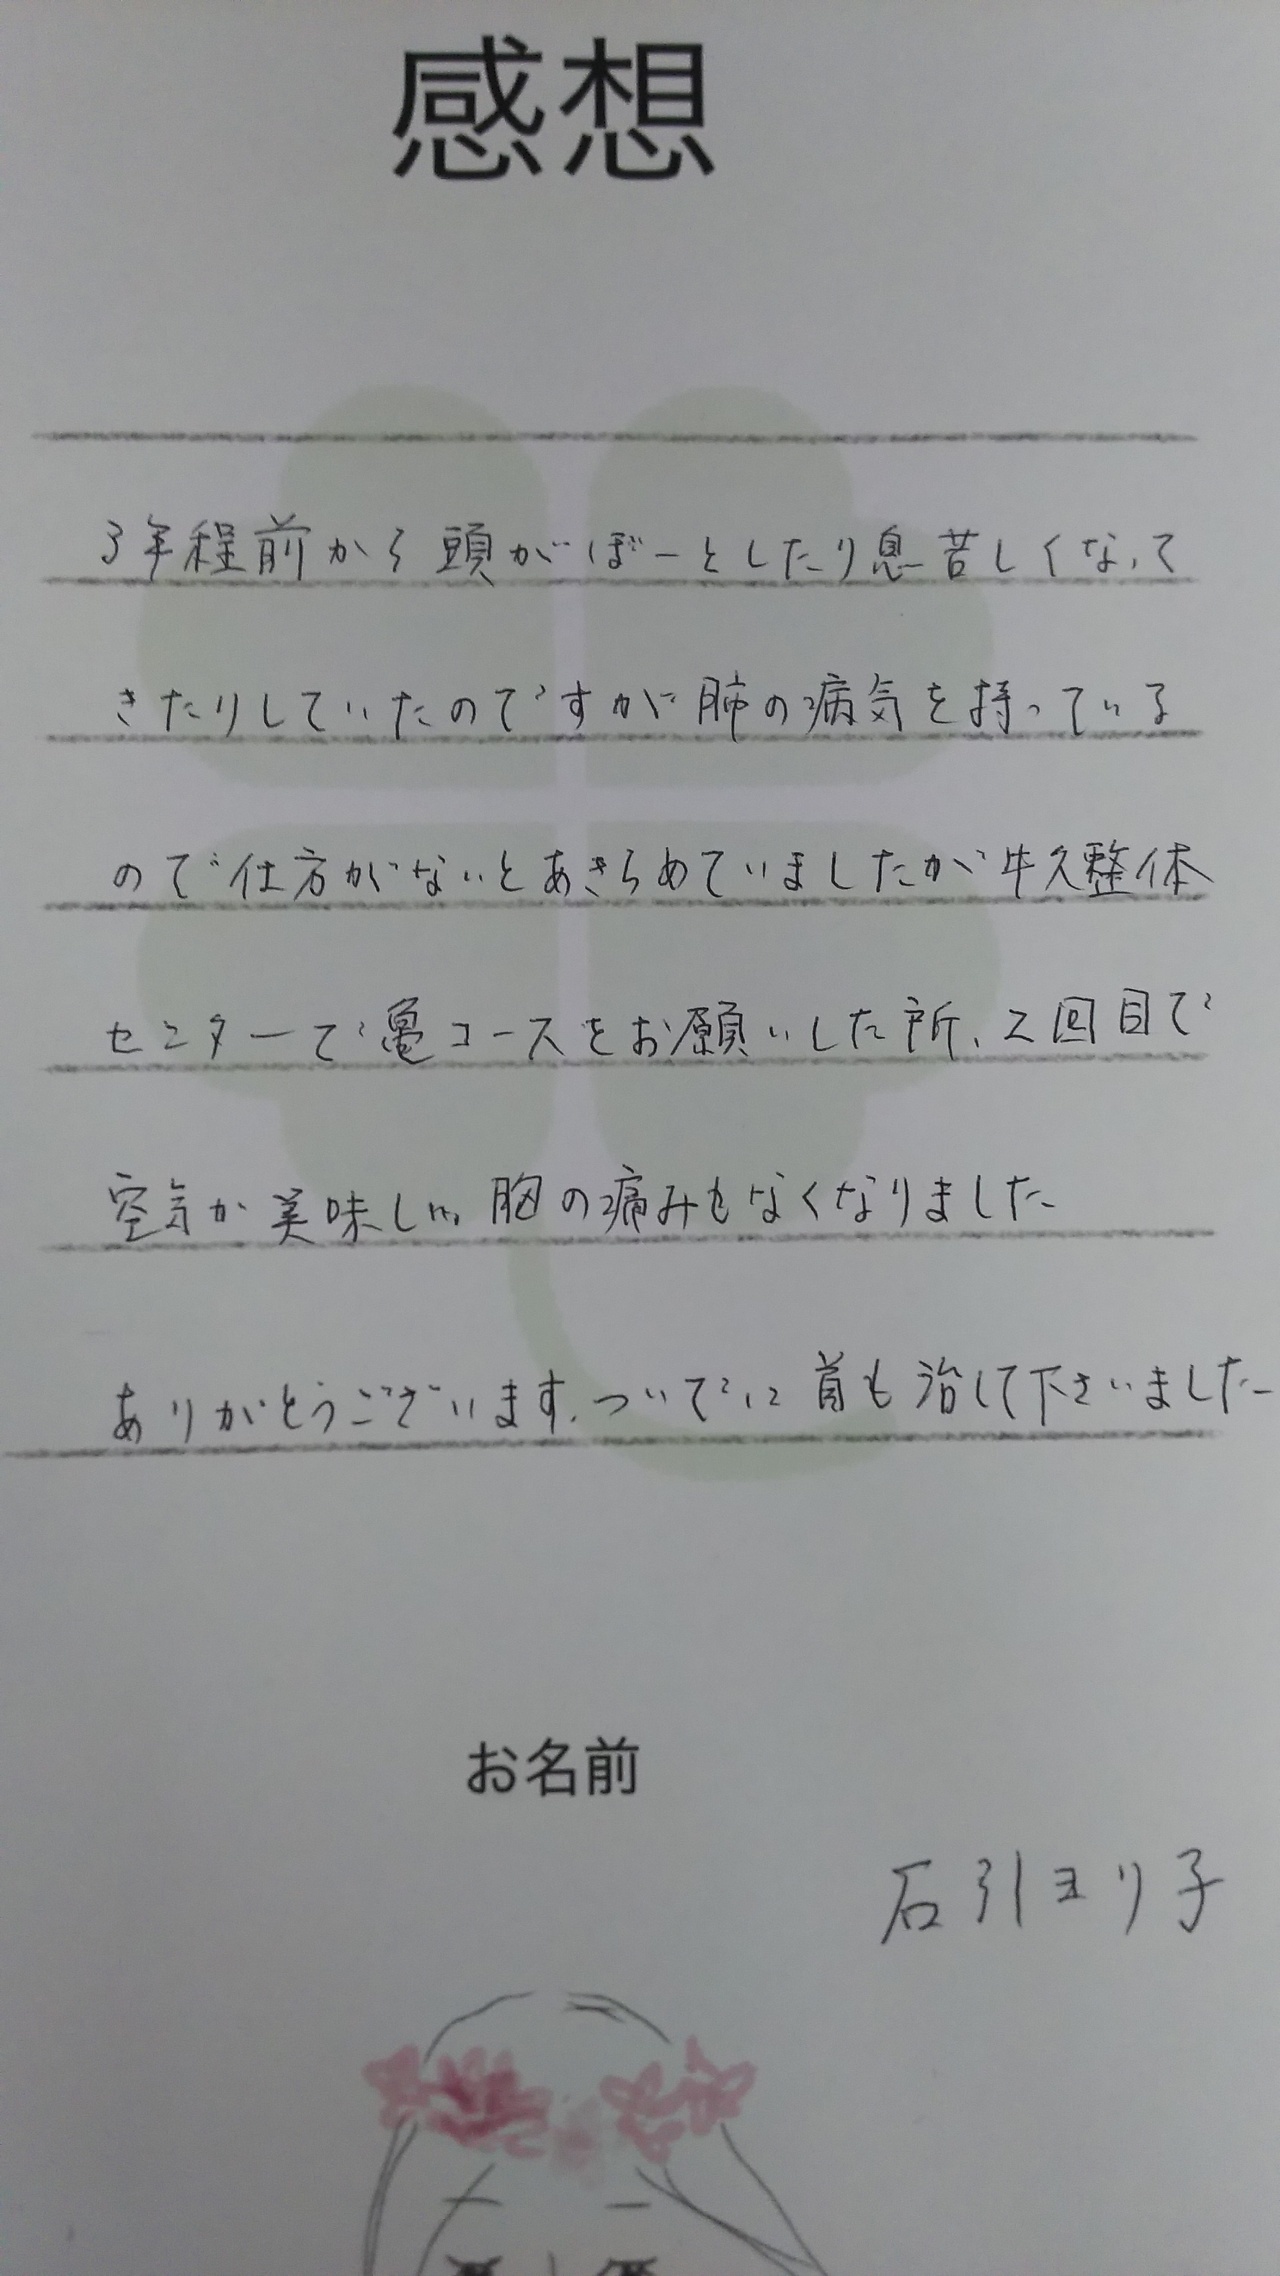 感想
3年程前から頭がぼーとしたり息苦しくなって
きたりしていたのですが肺の病気を持っている
ので仕方がないとあきらめていましたが牛久整体
センターで亀コースをお願いした所、2回目で
空気が美味しい、胸の痛みもなくなりました
ありがとうございます。ついでに首も治して下さいました
お名前
石引ヨリ子